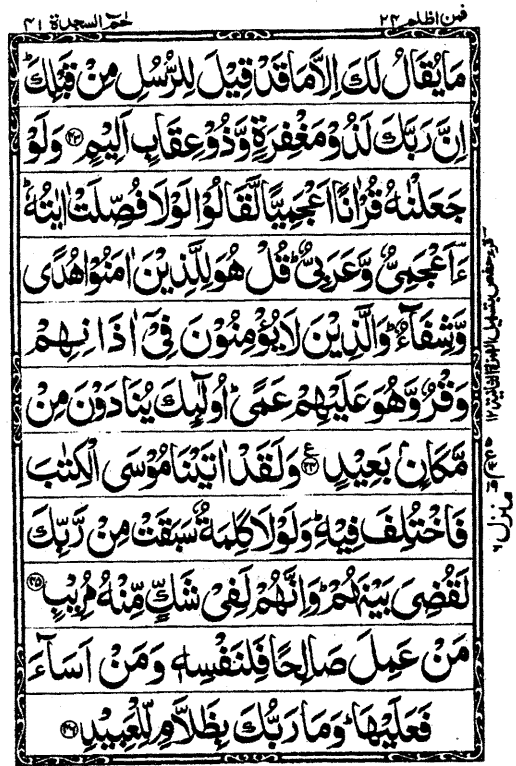 فمن اظلم ٢٤
حٰمٓ السجدة ٤١
مَا يُقَالُ لَكَ اِلَّا مَا قَدْ قِيْلَ لِلرُّسُلِ مِنْ قَبْلِكَ ؕ
اِنَّ رَبَّكَ لَذُوْ مَغْفِرَةٍ وَّذُوْ عِقَابٍ اَلِيْمٍ ﴿۴۳﴾ وَلَوْ
جَعَلْنٰهُ قُرْاٰنًا اَعْجَمِيًّا لَّقَالُوْا لَوْلَا فُصِّلَتْ اٰيٰتُهٗ ؕ
ءَاَعْجَمِىٌّ وَّعَرَبِىٌّ ؕ قُلْ هُوَ لِلَّذِيْنَ اٰمَنُوْا هُدًى
وَّشِفَآءٌ ؕ وَالَّذِيْنَ لَا يُؤْمِنُوْنَ فِىْۤ اٰذَانِهِمْ
وَقْرٌ وَّهُوَ عَلَيْهِمْ عَمًى ؕ اُولٰٓئِكَ يُنَادَوْنَ مِنْ
مَّكَانٍۢ بَعِيْدٍ ﴿۴۴﴾ ع وَلَقَدْ اٰتَيْنَا مُوْسَى الْكِتٰبَ
فَاخْتُلِفَ فِيْهِ ؕ وَلَوْلَا كَلِمَةٌ سَبَقَتْ مِنْ رَّبِّكَ
لَقُضِىَ بَيْنَهُمْ ؕ وَاِنَّهُمْ لَفِىْ شَكٍّ مِّنْهُ مُرِيْبٍ ﴿۴۵﴾
مَنْ عَمِلَ صَالِحًا فَلِنَفْسِهٖ وَمَنْ اَسَآءَ
فَعَلَيْهَا ؕ وَمَا رَبُّكَ بِظَلَّامٍ لِّلْعَبِيْدِ ﴿۴۶﴾
منزل ٦